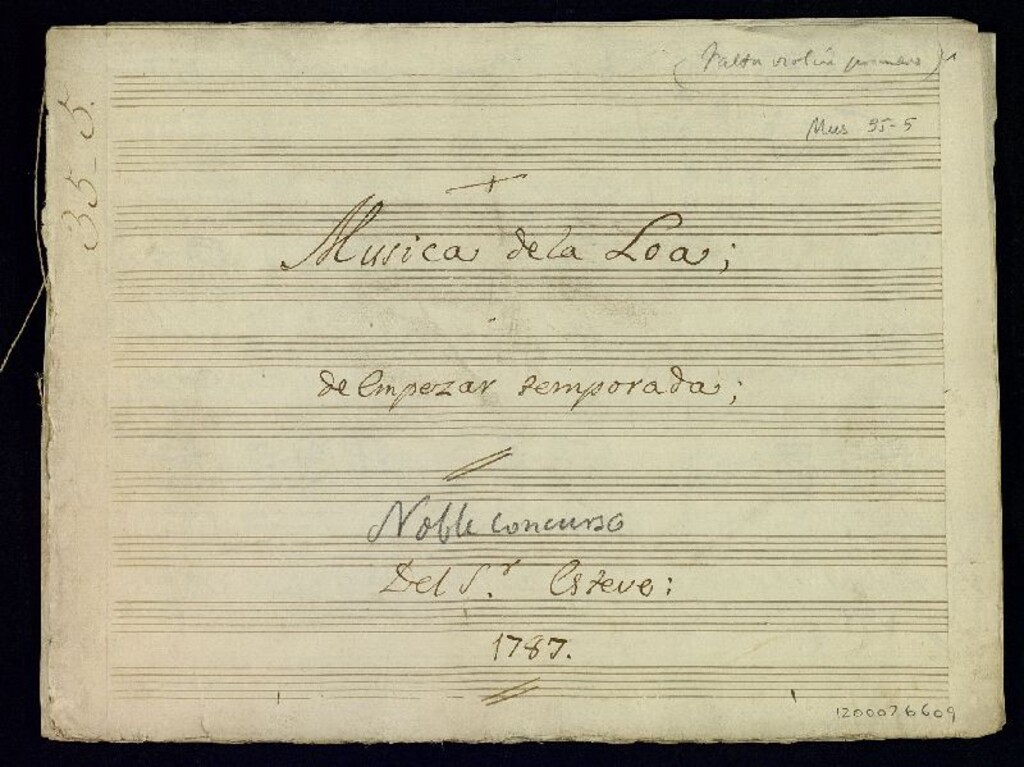 (Falta violin primero)
Mus 35-5
35-5.
Musica de la Loa;
de Empezar temporada;
Noble concurso
Del S.r Esteve:
1787.
1200076609